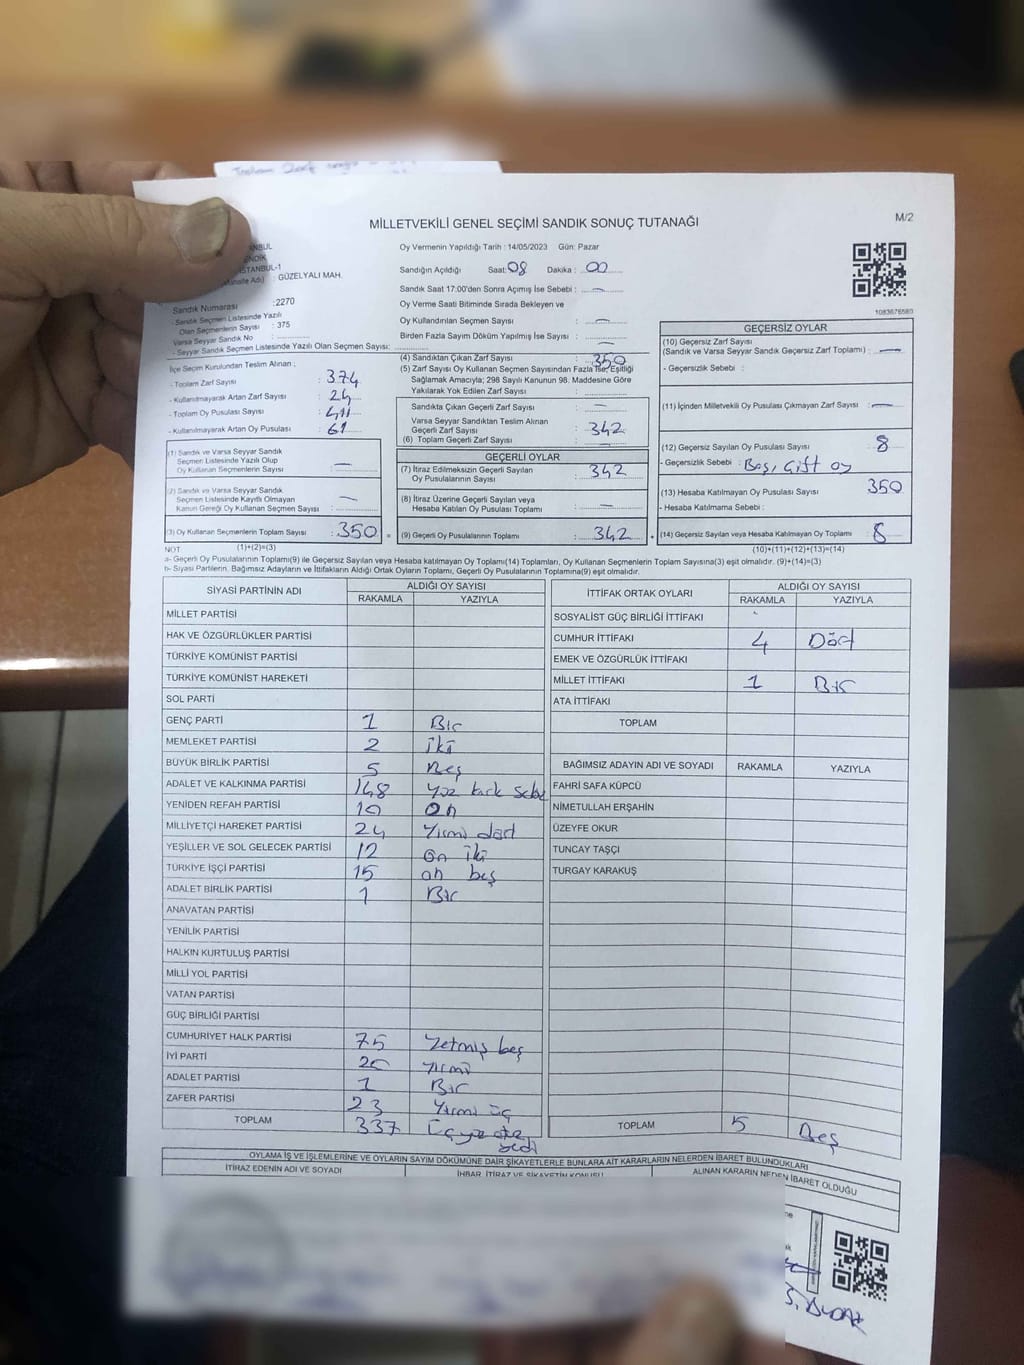 MİLLETVEKİLİ GENEL SEÇİMİ SANDIK SONUÇ TUTANAĞI
M/2
Oy Vermenin Yapıldığı Tarih : 14/05/2023 Gün: Pazar
İSTANBUL-1
: GÜZELYALI MAH.
Sandığın Açıldığı Saat: 08 Dakika : 00
Sandık Saat 17:00'den Sonra Açımış İse Sebebi : —
Sandık Numarası : 2270
- Sandık Seçmen Listesinde Yazılı
Olan Seçmenlerin Sayısı : 375
Varsa Seyyar Sandık No :
- Seyyar Sandık Seçmen Listesinde Yazılı Olan Seçmen Sayısı:
Oy Verme Saati Bitiminde Sırada Bekleyen ve
Oy Kullandırılan Seçmen Sayısı : —
Birden Fazla Sayım Dökümü Yapılmış İse Sayısı : —
1083676580
İlçe Seçim Kurulundan Teslim Alınan ;
- Toplam Zarf Sayısı : 374
- Kullanılmayarak Artan Zarf Sayısı : 24
- Toplam Oy Pusulası Sayısı : 411
- Kullanılmayarak Artan Oy Pusulası : 61
(1) Sandık ve Varsa Seyyar Sandık
Seçmen Listesinde Yazılı Olup
Oy Kullanan Seçmenlerin Sayısı : —
(2) Sandık ve Varsa Seyyar Sandık
Seçmen Listesinde Kayıtlı Olmayan
Kanun Gereği Oy Kullanan Seçmen Sayısı : —
(3) Oy Kullanan Seçmenlerin Toplam Sayısı : 350
(4) Sandıktan Çıkan Zarf Sayısı : 350
(5) Zarf Sayısı Oy Kullanan Seçmen Sayısından Fazla İse, Eşitliği
Sağlamak Amacıyla; 298 Sayılı Kanunun 98. Maddesine Göre
Yakılarak Yok Edilen Zarf Sayısı :
Sandıkta Çıkan Geçerli Zarf Sayısı : —
Varsa Seyyar Sandıktan Teslim Alınan
Geçerli Zarf Sayısı : 342
(6) Toplam Geçerli Zarf Sayısı :
GEÇERLİ OYLAR
(7) İtiraz Edilmeksizin Geçerli Sayılan
Oy Pusulalarının Sayısı : 342
(8) İtiraz Üzerine Geçerli Sayılan veya
Hesaba Katılan Oy Pusulası Toplamı : —
(9) Geçerli Oy Pusulalarının Toplamı : 342
GEÇERSİZ OYLAR
(10) Geçersiz Zarf Sayısı
(Sandık ve Varsa Seyyar Sandık Geçersiz Zarf Toplamı) : —
- Geçersizlik Sebebi :
(11) İçinden Milletvekili Oy Pusulası Çıkmayan Zarf Sayısı : —
(12) Geçersiz Sayılan Oy Pusulası Sayısı : 8
- Geçersizlik Sebebi : Boş, Çift oy
(13) Hesaba Katılmayan Oy Pusulası Sayısı : 350
- Hesaba Katılmama Sebebi :
(14) Geçersiz Sayılan veya Hesaba Katılmayan Oy Toplamı : 8
NOT (1)+(2)=(3)
(10)+(11)+(12)+(13)=(14)
a- Geçerli Oy Pusulalarının Toplamı(9) ile Geçersiz Sayılan veya Hesaba katılmayan Oy Toplamı(14) Toplamları, Oy Kullanan Seçmenlerin Toplam Sayısına(3) eşit olmalıdır. (9)+(14)=(3)
b- Siyasi Partilerin, Bağımsız Adayların ve İttifakların Aldığı Ortak Oyların Toplamı, Geçerli Oy Pusulalarının Toplamına(9) eşit olmalıdır.
SİYASİ PARTİNİN ADI ALDIĞI OY SAYISI
RAKAMLA YAZIYLA
MİLLET PARTİSİ
HAK VE ÖZGÜRLÜKLER PARTİSİ
TÜRKİYE KOMÜNİST PARTİSİ
TÜRKİYE KOMÜNİST HAREKETİ
SOL PARTİ
GENÇ PARTİ 1 Bir
MEMLEKET PARTİSİ 2 iki
BÜYÜK BİRLİK PARTİSİ 5 Beş
ADALET VE KALKINMA PARTİSİ 148 Yüz kırk
YENİDEN REFAH PARTİSİ 10 On
MİLLİYETÇİ HAREKET PARTİSİ 24 Yirmi dört
YEŞİLLER VE SOL GELECEK PARTİSİ 12 On iki
TÜRKİYE İŞÇİ PARTİSİ 15 on beş
ADALET BİRLİK PARTİSİ 1 Bir
ANAVATAN PARTİSİ
YENİLİK PARTİSİ
HALKIN KURTULUŞ PARTİSİ
MİLLİ YOL PARTİSİ
VATAN PARTİSİ
GÜÇ BİRLİĞİ PARTİSİ
CUMHURİYET HALK PARTİSİ 75 Yetmiş beş
İYİ PARTİ 20 Yirmi
ADALET PARTİSİ 1 Bir
ZAFER PARTİSİ 23 Yirmi üç
TOPLAM 337 Üçyüz otuz
yedi
İTTİFAK ORTAK OYLARI ALDIĞI OY SAYISI
RAKAMLA YAZIYLA
SOSYALİST GÜÇ BİRLİĞİ İTTİFAKI
CUMHUR İTTİFAKI 4 Dört
EMEK VE ÖZGÜRLÜK İTTİFAKI
MİLLET İTTİFAKI 1 Bir
ATA İTTİFAKI
TOPLAM
BAĞIMSIZ ADAYIN ADI VE SOYADI RAKAMLA YAZIYLA
FAHRİ SAFA KÜPCÜ
NİMETULLAH ERŞAHİN
ÜZEYFE OKUR
TUNCAY TAŞÇI
TURGAY KARAKUŞ
TOPLAM 5 Beş
OYLAMA İŞ VE İŞLEMLERİNE VE OYLARIN SAYIM DÖKÜMÜNE DAİR ŞİKAYETLERLE BUNLARA AİT KARARLARIN NELERDEN İBARET BULUNDUKLARI
İTİRAZ EDENİN ADI VE SOYADI
İHBAR, İTİRAZ VE ŞİKAYETİN KONUSU
ALINAN KARARIN NEDEN İBARET OLDUĞU